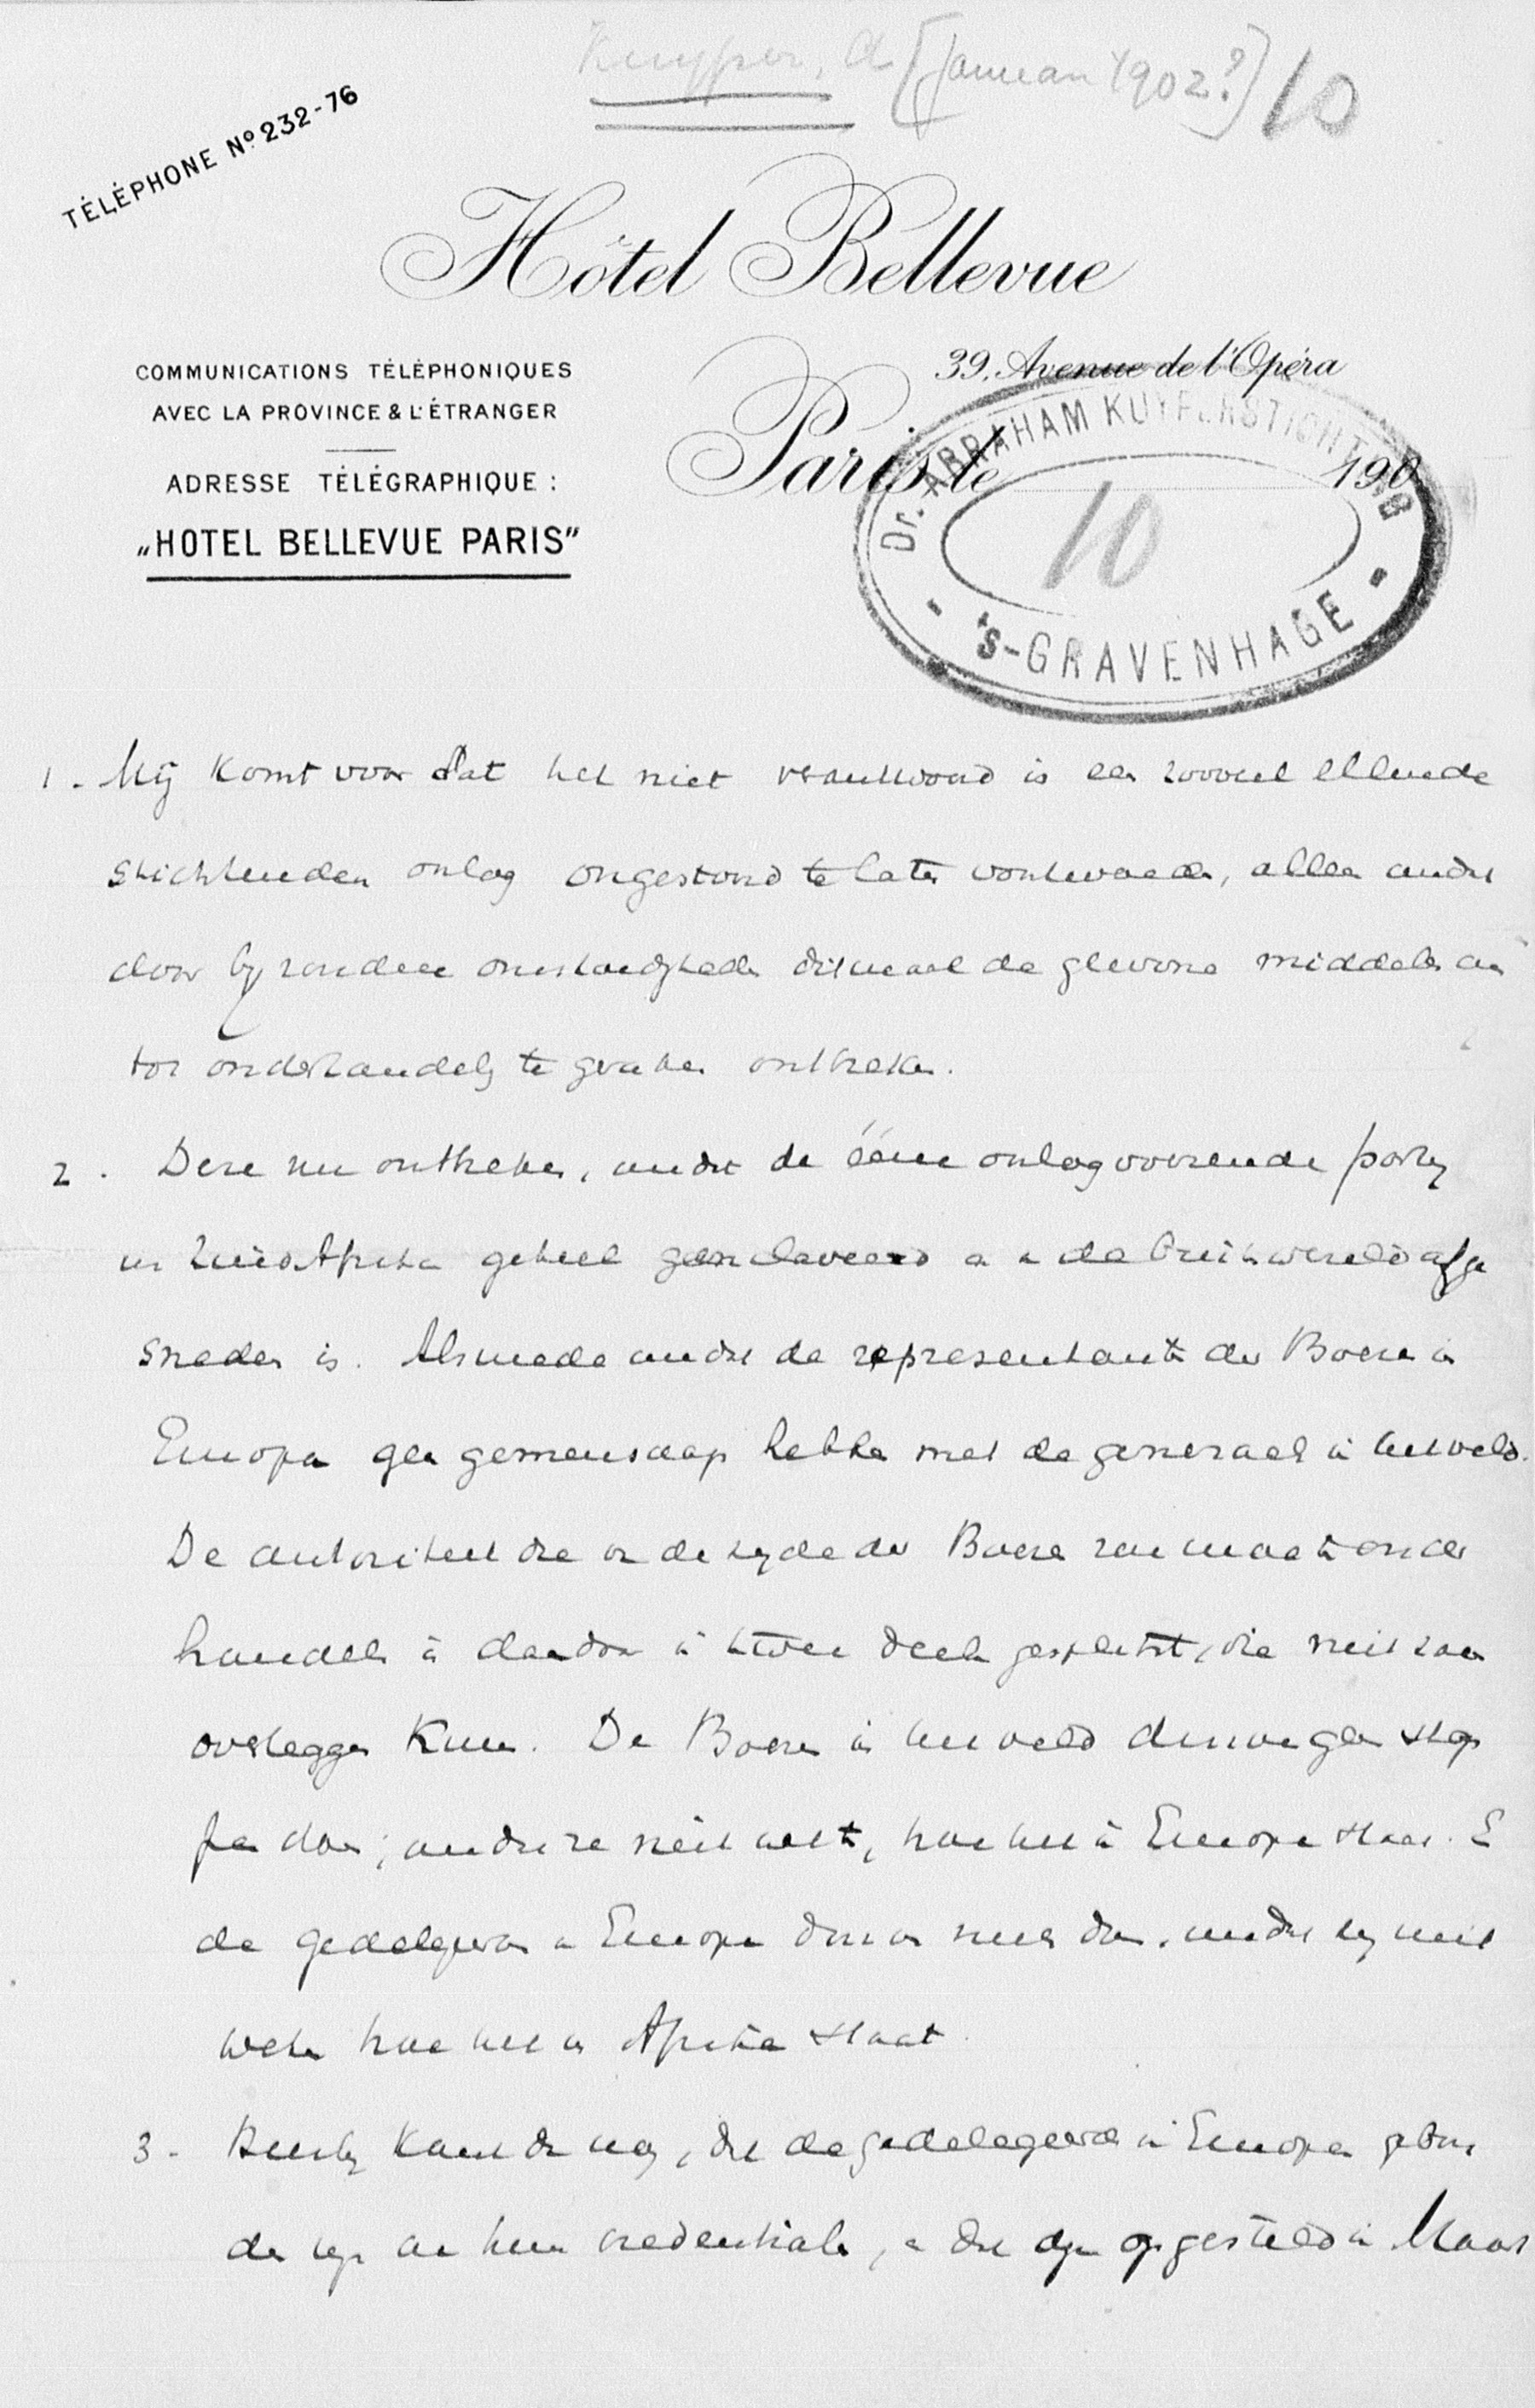 Kuyper, A [Januari 1902?] 10
TÉLÉPHONE Nº 232-76
Hôtel Bellevue
COMMUNICATIONS TÉLÉPHONIQUES
AVEC LA PROVINCE & L'ÉTRANGER
ADRESSE TÉLÉGRAPHIQUE :
„HOTEL BELLEVUE PARIS"
39, Avenue de l'Opéra
Paris, le 190
Dr. ABRAHAM KUYPERSTICHTING
10
'S-GRAVENHAGE
1. Mij komt voor dat het niet verantwoord is een zooveel ellende
stichtenden oorlog ongestoord te laten voortwoeden, alleen omdat
door byzondere omstandigheden ditmaal de gewone middelen om
tot onderhandelg te geraken ontbreken.
2. Deze nu ontbreken, omdat de ééne oorlogvoerende party
in Zuid Afrika geheel geenclaveerd en van de buitenwereld afge
sneden is. Alsmede omdat de representanten der Boeren in
Europa geen gemeenschap hebben met de generaals in het veld.
De autoriteit die van de zyde der Boeren zou moeten onder
handelen is daardoor in twee deelen gesplitst, die niet samen
overleggen kunnen. De Boeren in het veld durven geen stap
doen, omdat ze niet weten, hoe het in Europa staat. En
de gedelegeerden in Europa durven niets doen, omdat zy niet
weten hoe het in Afrika staat.
3. Hierby komt dan nog, dat de gedelegeerden in Europa gebon
den zyn aan hun credentialen, en dat deze opgesteld in Maart